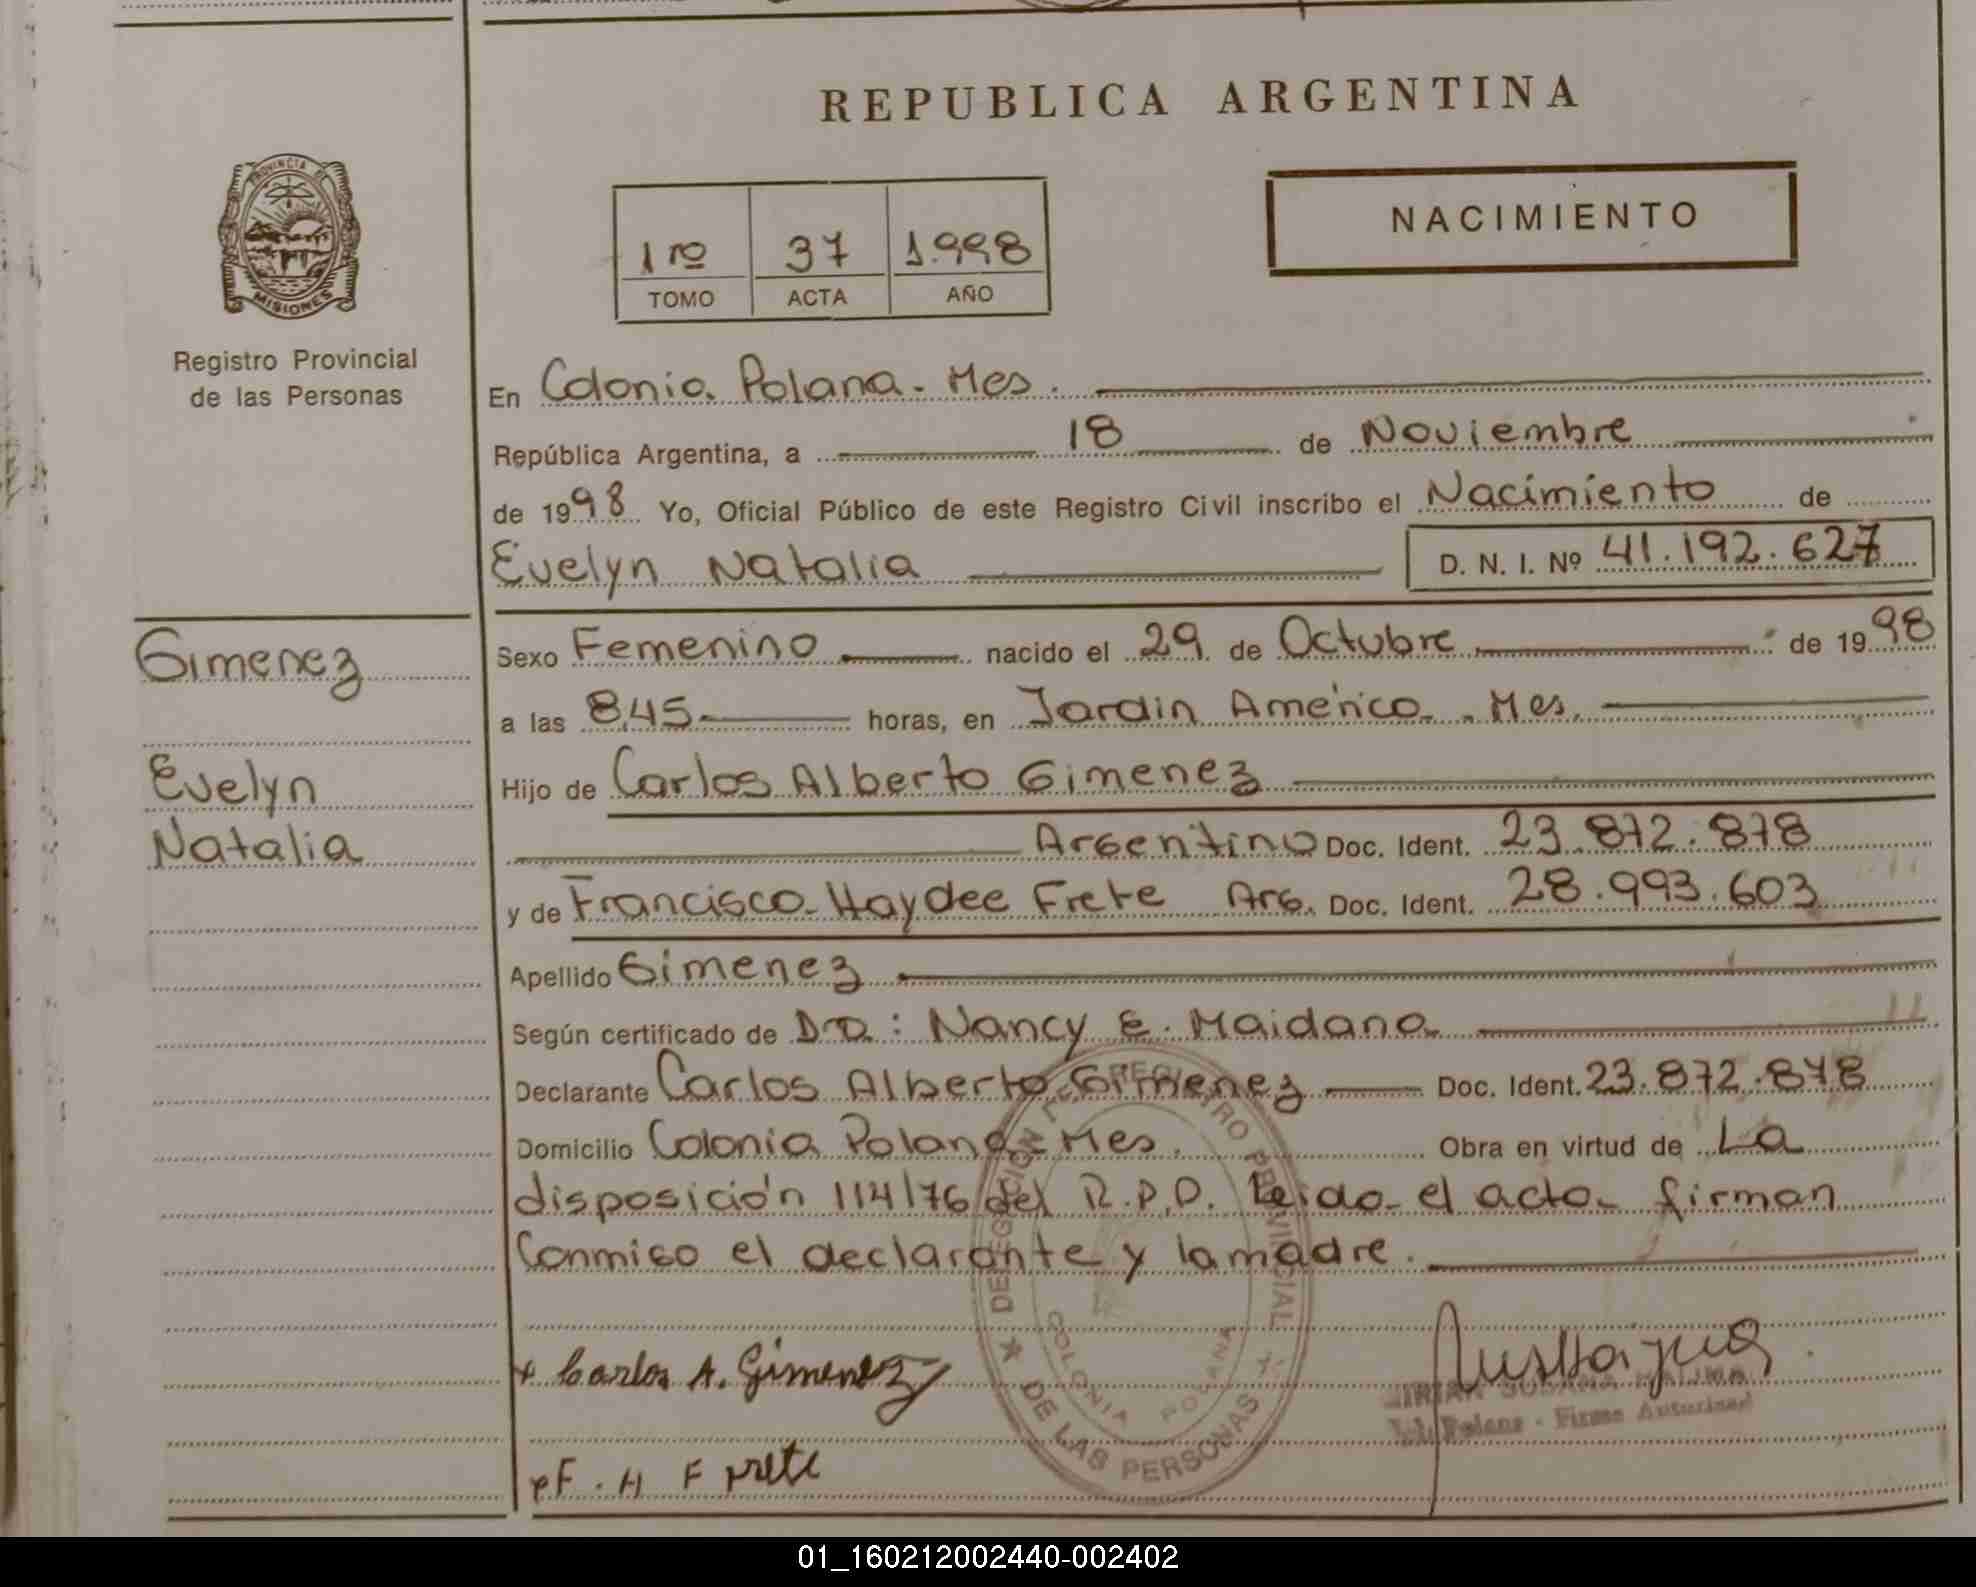 REPUBLICA ARGENTINA
PROVINCIA DE
MISIONES
Registro Provincial
de las Personas
1ro 37 1.998
TOMO ACTA AÑO
NACIMIENTO
En Colonia Polana - Mes.
República Argentina, a 18 de Noviembre
de 1998 Yo, Oficial Público de este Registro Civil inscribo el Nacimiento de
Evelyn Natalia D. N. I. Nº 41.192.627
Gimenez
Evelyn
Natalia
Sexo Femenino nacido el 29 de Octubre de 1998
a las 8,45 horas, en Jardin América - Mes.
Hijo de Carlos Alberto Gimenez
Argentino Doc. Ident. 23.872.878
y de Francisca Haydee Frete Arg. Doc. Ident. 28.993.603
Apellido Gimenez
Según certificado de Dra: Nancy E. Maidana
Declarante Carlos Alberto Gimenez Doc. Ident. 23.872.878
Domicilio Colonia Polana - Mes. Obra en virtud de La
disposición 114/76 del R.P.P. Leida el acta firman
Conmigo el declarante y la madre.
DELEGACION REGISTRO PROVINCIAL
DE LAS PERSONAS
COLONIA POLANA
+ Carlos A. Gimenez
SUSANA
Polana - Firma Autorizada
F. H Frete
01_160212002440-002402